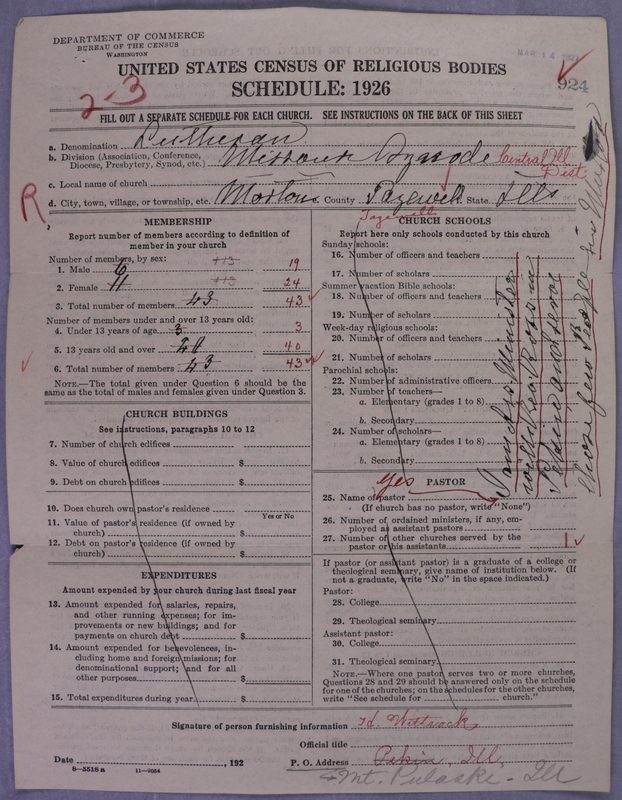 DEPARTMENT OF COMMERCE
BUREAU OF THE CENSUS
WASHINGTON
MAR 14
924
UNITED STATES CENSUS OF RELIGIOUS BODIES
SCHEDULE: 1926
2-3
FILL OUT A SEPARATE SCHEDULE FOR EACH CHURCH. SEE INSTRUCTIONS ON THE BACK OF THIS SHEET
a. Denomination Lutheran
b. Division (Association, Conference, Diocese, Presbytery, Synod, etc.) Missouri Synode Central Ill Dist.
c. Local name of church
R
d. City, town, village, or township, etc. Morton County Tazewell State Ills
Tazewell
MEMBERSHIP
Report number of members according to definition of
member in your church
Number of members, by sex:
1. Male 6 113 19
2. Female 11 113 24
3. Total number of members 43 43
Number of members under and over 13 years old:
4. Under 13 years of age 3 3
5. 13 years old and over 40
6. Total number of members 43 43
NOTE.—The total given under Question 6 should be the
same as the total of males and females given under Question 3.
CHURCH BUILDINGS
See instructions, paragraphs 10 to 12
7. Number of church edifices
8. Value of church edifices $
9. Debt on church edifices $
10. Does church own pastor's residence
Yes or No
11. Value of pastor's residence (if owned by
church) $
12. Debt on pastor's residence (if owned by
church) $
EXPENDITURES
Amount expended by your church during last fiscal year
13. Amount expended for salaries, repairs,
and other running expenses; for im-
provements or new buildings; and for
payments on church debt $
14. Amount expended for benevolences, in-
cluding home and foreign missions; for
denominational support; and for all
other purposes $
15. Total expenditures during year $
CHURCH SCHOOLS
Report here only schools conducted by this church
Sunday schools:
16. Number of officers and teachers
17. Number of scholars
Summer vacation Bible schools:
18. Number of officers and teachers
19. Number of scholars
Week-day religious schools:
20. Number of officers and teachers
21. Number of scholars
Parochial schools:
22. Number of administrative officers
23. Number of teachers—
a. Elementary (grades 1 to 8)
b. Secondary
24. Number of scholars—
a. Elementary (grades 1 to 8)
b. Secondary
Minister
and serve
these few People
Yes
PASTOR
25. Name of pastor
(If church has no pastor, write "None")
26. Number of ordained ministers, if any, em-
ployed as assistant pastors
27. Number of other churches served by the
pastor or his assistants 1
If pastor (or assistant pastor) is a graduate of a college or
theological seminary, give name of institution below. (If
not a graduate, write "No" in the space indicated.)
Pastor:
28. College
29. Theological seminary
Assistant pastor:
30. College
31. Theological seminary
NOTE.—Where one pastor serves two or more churches,
Questions 28 and 29 should be answered only on the schedule
for one of the churches; on the schedules for the other churches,
write "See schedule for church."
Signature of person furnishing information Wittrock
Official title
Date , 192
P. O. Address Pekin, Ill.
8—5518 a 11—9054
Mt. Pulaski - Ill